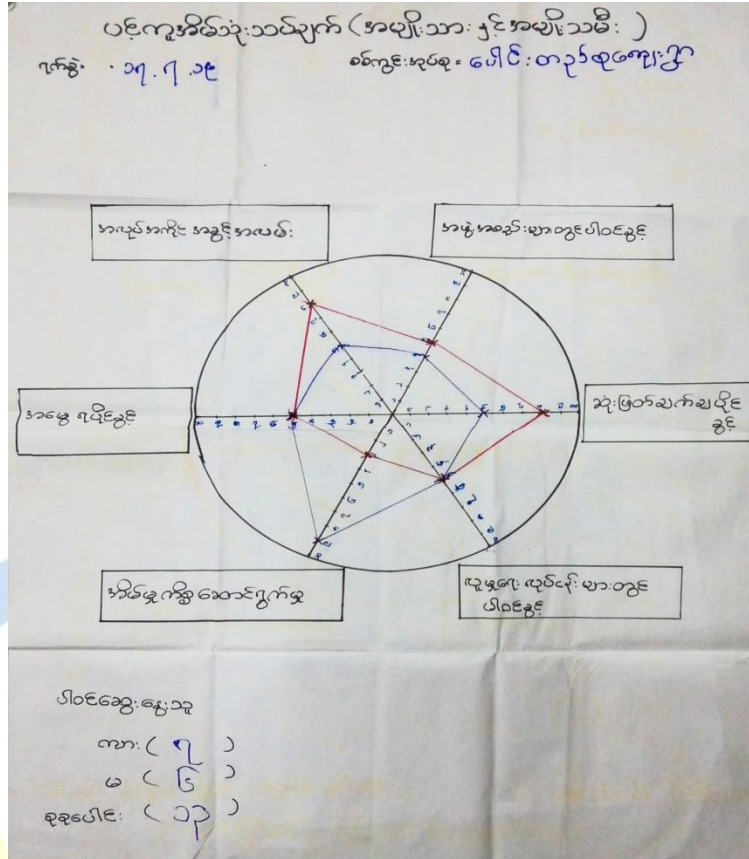 ပင့်ကူအိမ်သုံးသပ်ချက် (အမျိုးသား နှင့် အမျိုးသမီး )
ရက်စွဲ - ၁၇.၇.၁၉
စစ်ကွင်းအုပ်စု - ပေါင်းတည်စုကျေးရွာ
အလုပ်အကိုင် အခွင့်အလမ်း
အဖွဲ့အစည်းများတွင်ပါဝင်ခွင့်
အမွေ ရပိုင်ခွင့်
ဆုံးဖြတ်ချက်ချပိုင်
ခွင့်
အိမ်မှုကိစ္စ ဆောင်ရွက်မှု
လူမှုရေး လုပ်ငန်းများတွင်
ပါဝင်ခွင့်
ပါဝင်ဆွေးနွေးသူ
ကျား ( ၇ )
မ ( ၆ )
စုစုပေါင်း ( ၁၃ )